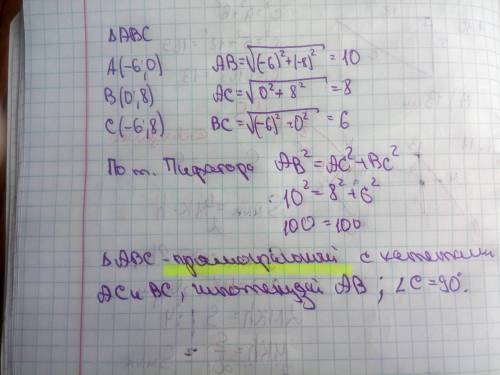 ΔABC
A(-6;0) AB=√(-6)²+(-8)² = 10
B(0;8) AC=√0²+8² =8
C(-6;8) BC=√(-6)²+0² = 6
По т. Пифагора AB²=AC²+BC²
10²=8²+6²
100=100
ΔABC - прямоугольный с катетами
AC и BC, гипотенузой AB; ∠C=90°.